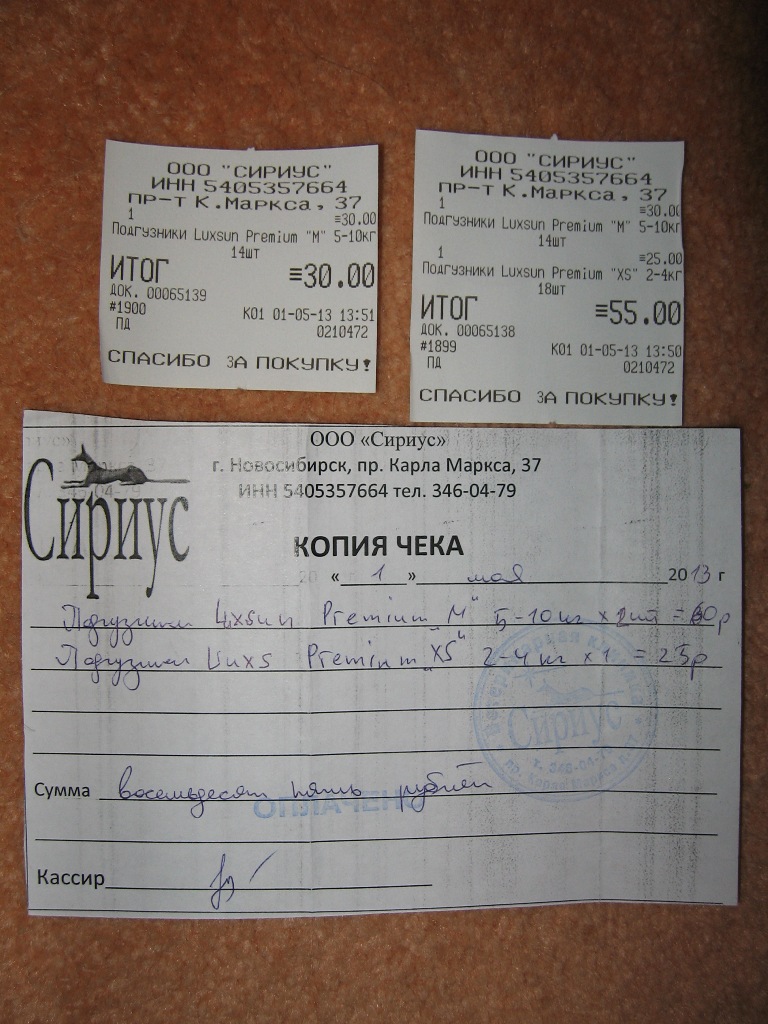 ООО "СИРИУС"
ИНН 5405357664
ПР-Т К.Маркса, 37
1
≡30.00
Подгузники Luxsun Premium "M" 5-10кг
14шт
ИТОГ ≡30.00
ДОК. 00065139
#1900 К01 01-05-13 13:51
ПД 0210472
СПАСИБО ЗА ПОКУПКУ!
ООО "СИРИУС"
ИНН 5405357664
ПР-Т К.Маркса, 37
1
≡30.00
Подгузники Luxsun Premium "M" 5-10кг
14шт
1
≡25.00
Подгузники Luxsun Premium "XS" 2-4кг
18шт
ИТОГ ≡55.00
ДОК. 00065138
#1899 К01 01-05-13 13:50
ПД 0210472
СПАСИБО ЗА ПОКУПКУ!
Сириус
ООО «Сириус»
г. Новосибирск, пр. Карла Маркса, 37
ИНН 5405357664 тел. 346-04-79
КОПИЯ ЧЕКА
« 1 » мая 2013 г
Подгузники Luxsun Premium "M" 5-10 кг x 2шт = 60р
Подгузники Premium "XS" 2-4 кг x 1 = 25р
Сириус
т. 346-04-79
Сумма восемьдесят пять рублей
ОПЛАЧЕНО
Кассир